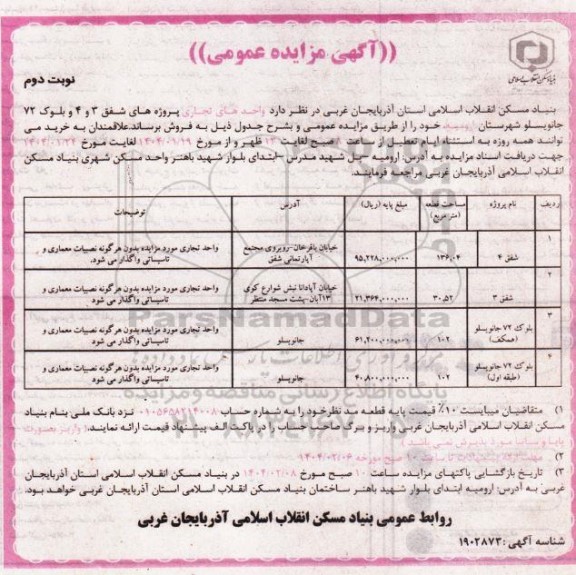 ((آگهی مزایده عمومی))
نوبت دوم
بنیاد مسکن انقلاب اسلامی
بنیاد مسکن انقلاب اسلامی استان آذربایجان غربی در نظر دارد واحد های تجاری پروژه های شفق ۳ و ۴ و بلوک ۷۲
جانویسلو شهرستان ارومیه خود را از طریق مزایده عمومی و بشرح جدول ذیل به فروش برساند.علاقمندان به خرید می
توانند همه روزه به استثناء ایام تعطیل از ساعت ۸ صبح لغایت ۱۳ ظهر و از مورخ ۱۴۰۴/۰۱/۱۹ لغایت مورخ ۱۴۰۴/۰۱/۲۴
جهت دریافت اسناد مزایده به آدرس: ارومیه سیل شهید مدرس -ابتدای بلوار شهید باهنر واحد مسکن شهری بنیاد مسکن
انقلاب اسلامی آذربایجان غربی مراجعه فرمایند.
ردیف نام پروژه مساحت قطعه (متر مربع) مبلغ پایه (ریال) آدرس توضیحات
۱ شفق ۴ ۱۳۶.۰۴ ۹۵,۲۲۸,۰۰۰,۰۰۰ خیابان باقرخان-روبروی مجتمع آپارتمانی شفق واحد تجاری مورد مزایده بدون هرگونه نصبیات معماری و تاسیساتی واگذار می شود.
۲ شفق ۳ ۳۰.۵۲ ۲۱,۳۶۴,۰۰۰,۰۰۰ خیابان آپادانا نبش شوارع کوی ۱۳آبان-پشت مسجد منتظر واحد تجاری مورد مزایده بدون هرگونه نصبیات معماری و تاسیساتی واگذار می شود
۳ بلوک ۷۲ جانویسلو (همکف) ۱۰۲ ۶۱,۲۰۰,۰۰۰,۰۰۰ جانویسلو واحد تجاری مورد مزایده بدون هرگونه نصبیات معماری و تاسیساتی واگذار می شود
۴ بلوک ۷۲ جانویسلو (طبقه اول) ۱۰۲ ۴۰,۸۰۰,۰۰۰,۰۰۰ جانویسلو واحد تجاری مورد مزایده بدون هرگونه نصبیات معماری و تاسیساتی واگذار می شود
ParsNamadData
پایگاه اطلاع رسانی مناقصه و مزایده
۱) متقاضیان میبایست ۱۰٪ قیمت پایه قطعه مد نظر خود را به شماره حساب نزد بانک ملی بنام بنیاد
مسکن انقلاب اسلامی آذربایجان غربی واریز و برگ صاحب حساب را در پاکت الف پیشنهاد قیمت ارائه نمایند،( واریز بصورت
پایا و ساتا مورد پذیرش نمی باشد )
۲) صبح مورخه ۱۴۰۴/۰۲/۰۶
۳) تاریخ بازگشایی پاکتهای مزایده ساعت ۱۰ صبح مورخ ۱۴۰۴/۰۲/۰۸ در بنیاد مسکن انقلاب اسلامی استان آذربایجان
غربی به آدرس: ارومیه ابتدای بلوار شهید باهنر ساختمان بنیاد مسکن انقلاب اسلامی استان آذربایجان غربی خواهد بود.
روابط عمومی بنیاد مسکن انقلاب اسلامی آذربایجان غربی
شناسه آگهی :۱۹۰۲۸۷۳